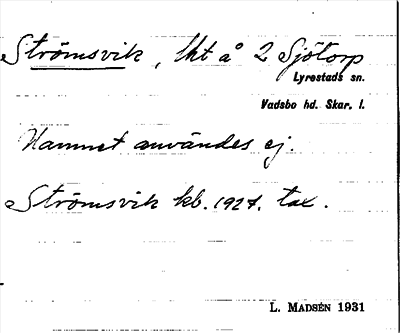 Strömsvik, lht å 2 Sjötorp
Lyrestads sn.
Vadsbo hd. Skar. l.
Namnet användes ej.
Strömsvik kb. 1924. tax.
L. MADSÉN 1931